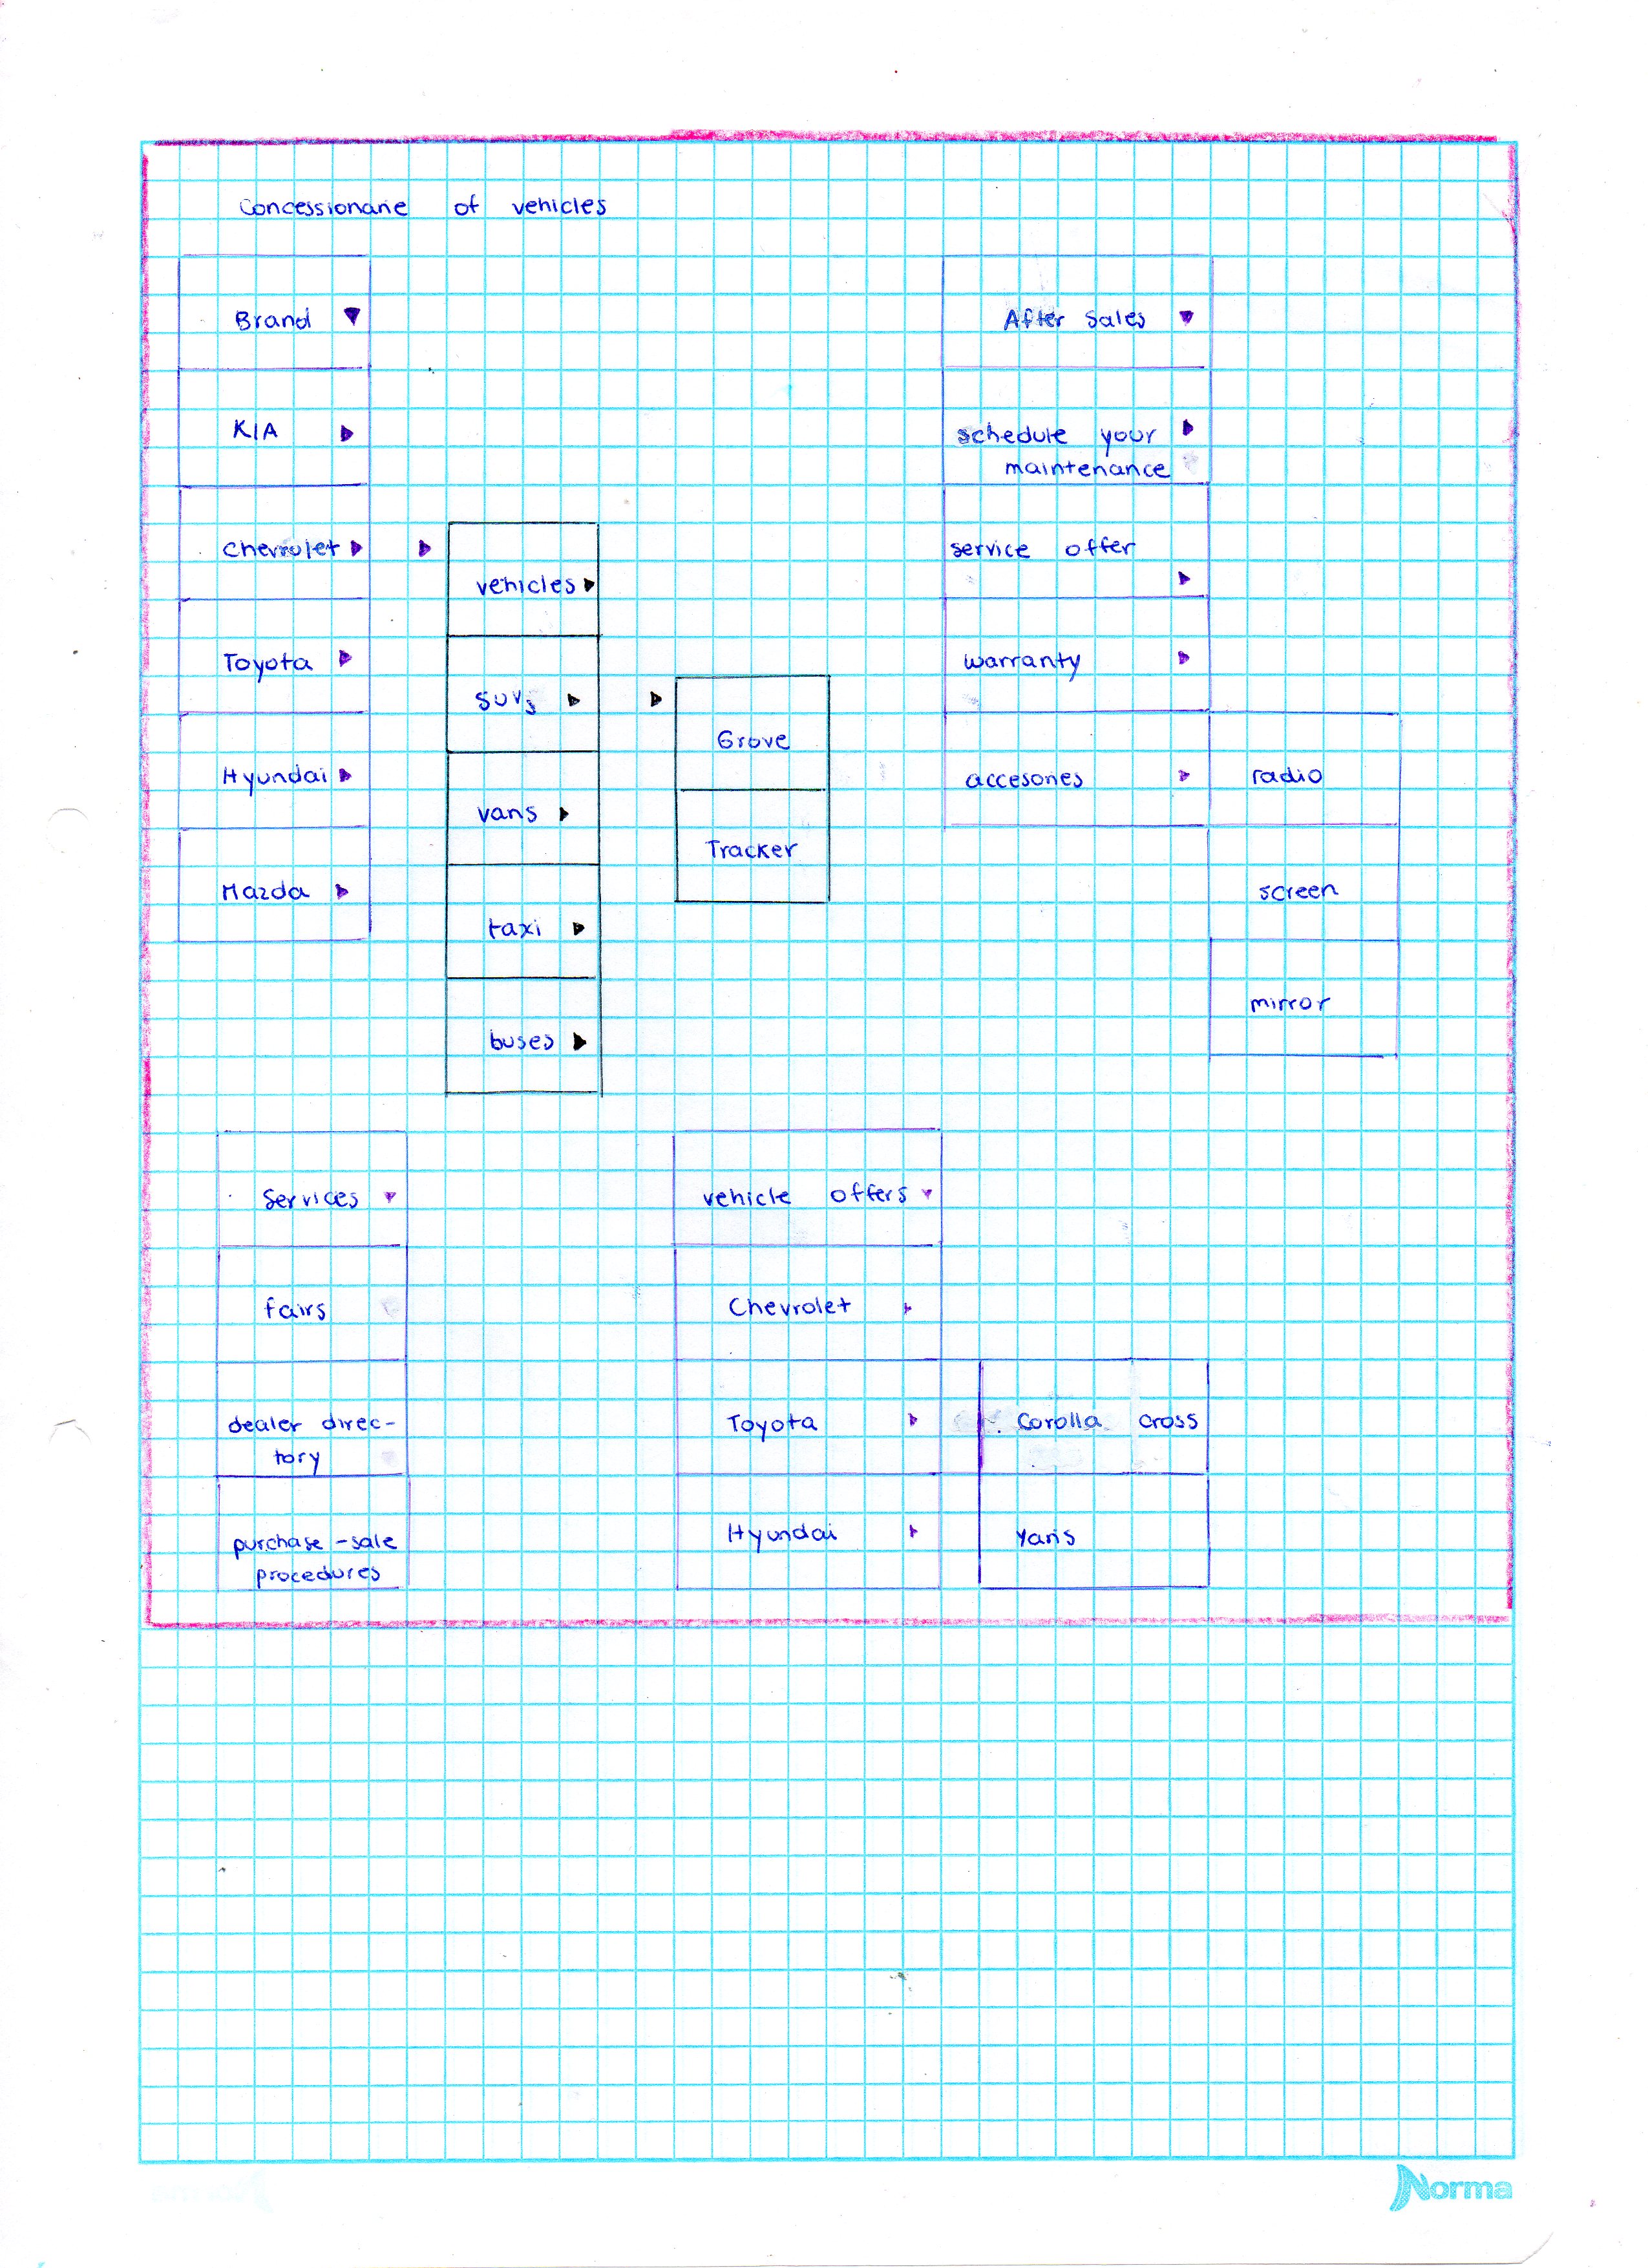 Concessionarie of vehicles
Brand
KIA
Chevrolet
Toyota
Hyundai
Mazda
vehicles
SUVs
vans
taxi
buses
Grove
Tracker
After Sales
schedule your
maintenance
service offer
warranty
accesories
radio
screen
mirror
Services
fairs
dealer direc-
tory
purchase - sale
procedures
vehicle offers
Chevrolet
Toyota
Hyundai
Corolla cross
Yaris
Norma